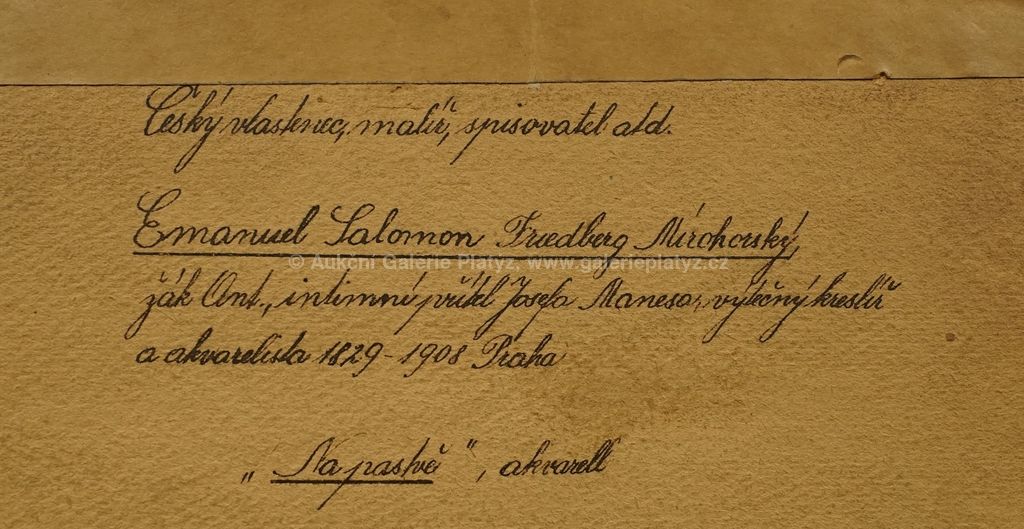 Český vlastenec, malíř, spisovatel atd.
Emanuel Salomon Friedberg Mírohorský,
© Aukční Galerie Platýz www.galerieplatyz.cz
žák Ant., intimní přítel Josefa Manesa, výtečný kreslíř
a akvarelista 1829-1908 Praha
„Na pastvě", akvarell